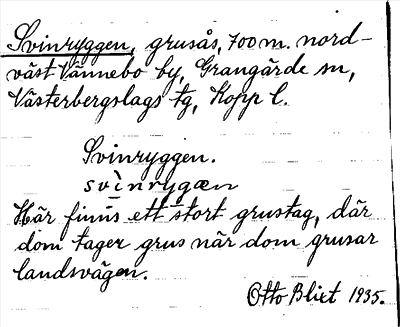 Svinryggen, grusås, 700 m. nord-
väst Vännebo by, Grangärde sn,
Västerbergslags tg, Kopp l.
Svinryggen.
svìnrygæn
Här finns ett stort grustag, där
dom tager grus när dom grusar
landsvägen.
Otto Blixt 1935.